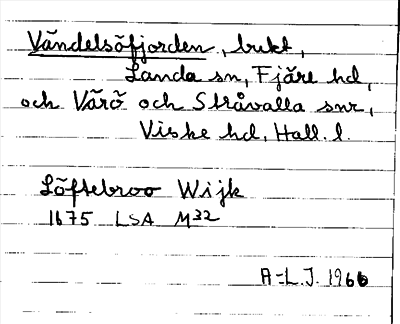 Vändelsöfjorden, bukt,
Landa sn, Fjäre hd,
och Värö och Stråvalla snr,
Viske hd, Hall. l.
Löftebroo Wijk
1675 LSA M32
A-L.J. 1966